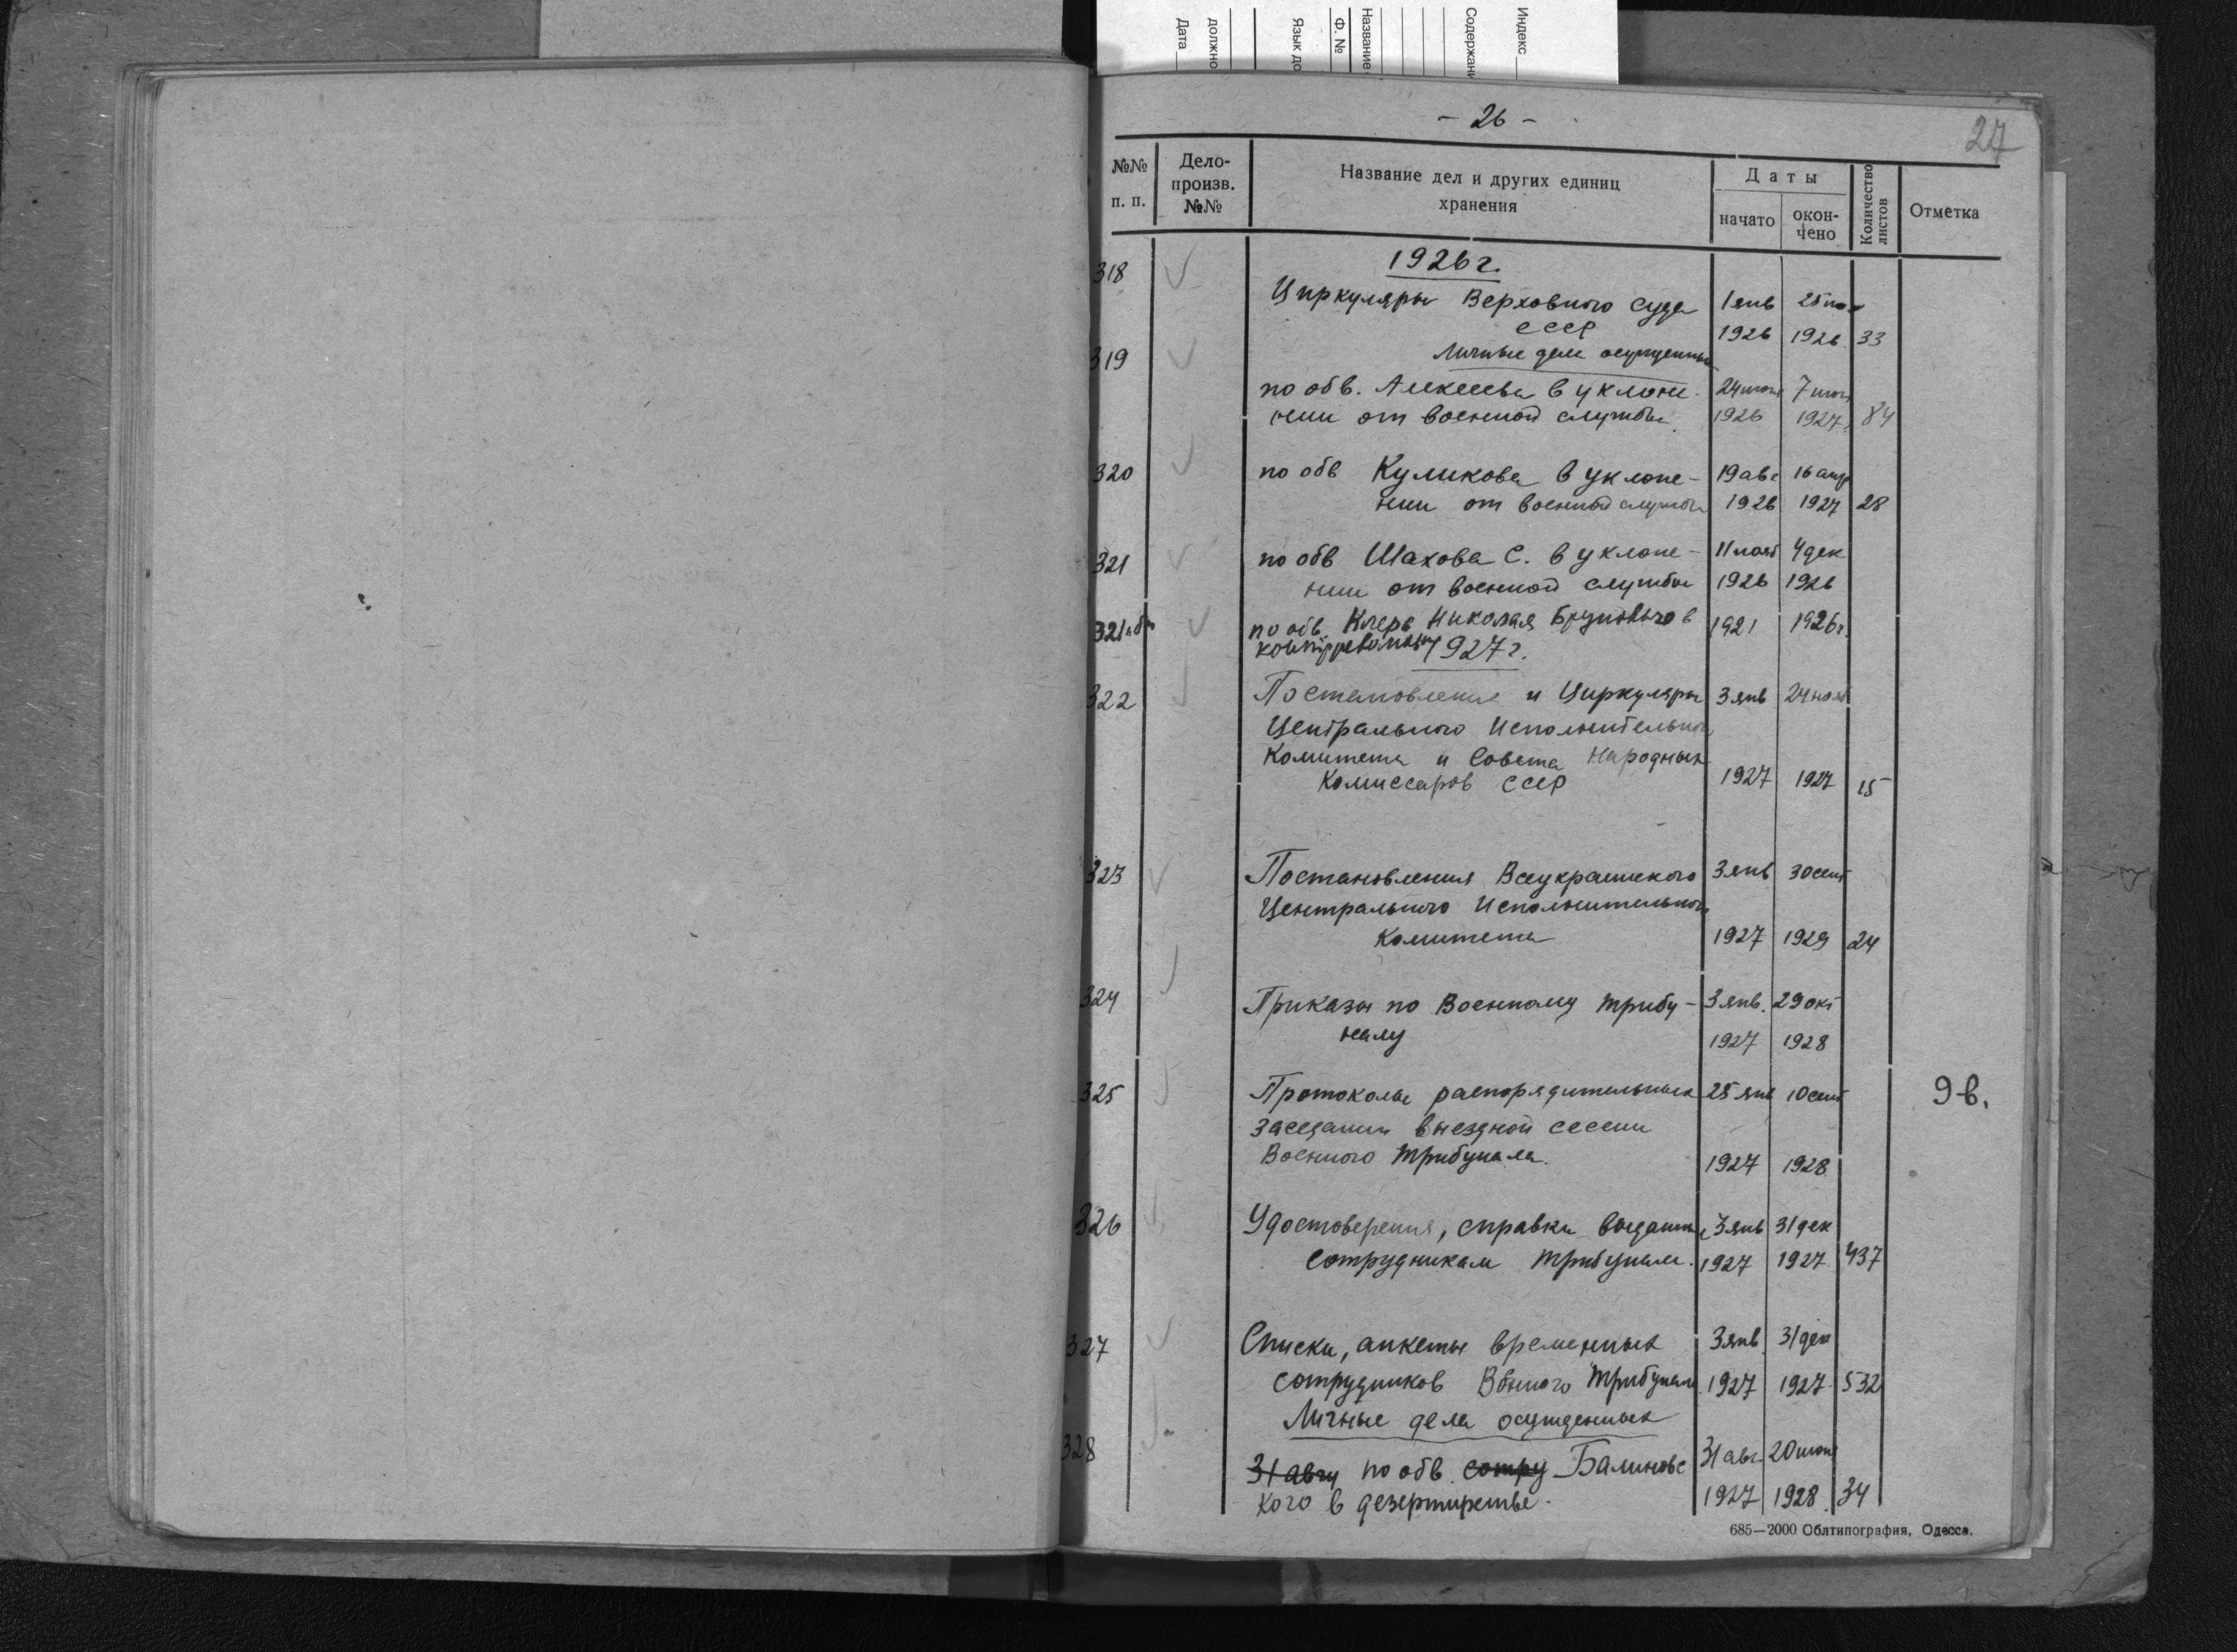 Индекс
Содержани
Название
Ф. №
Язык до
должно
Дата
- 26 -
27
№№ п. п.
Дело-произв. №№
Название дел и других единиц хранения
Даты
начато
окон-чено
Количество листов
Отметка
1926 г.
318 Циркуляры Верховного Суда 1 янв
СССР 1926 1926 33
319 Личные дела осужденных
по обв. Алексеева в уклоне- 24 июня 7 июля
нии от военной службы 1926 1927 84
320 по обв Куликова в уклоне- 19 авг 16 апр
нии от военной службы 1926 1927 28
321 по обв Шахова С. в уклоне- 11 нояб 4 дек
нии от военной службы 1926 1926
321а по обв. Клера Николая Бруновича в 1921 1926 г.
контрреволюц
1927 г.
322 Постановление и Циркуляры 3 янв 24 нояб
Центрального Исполнительного
Комитета и Совета Народных
Комиссаров СССР 1927 1927 15
323 Постановления Всеукраинского 3 янв 30 сент
Центрального Исполнительного
Комитета 1927 1929 24
324 Приказы по Военному трибу- 3 янв. 29 окт
налу 1927 1928
325 Протоколы распорядительных 25 янв 10 сент 9-в.
заседании выездной сессии
Военного Трибунала. 1927 1928
326 Удостоверения, справки выданные 3 янв 31 дек
сотрудникам Трибунала. 1927 1927 437
327 Списки, анкеты временных 3 янв 31 дек
сотрудников Военного Трибунала 1927 1927 532
Личные дела осужденных
328 31 авгу по обв. сотру Балиновс 31 авг. 20 июня
кого в дезертирстве. 1927 1928. 34
685—2000 Облтипография, Одесса.